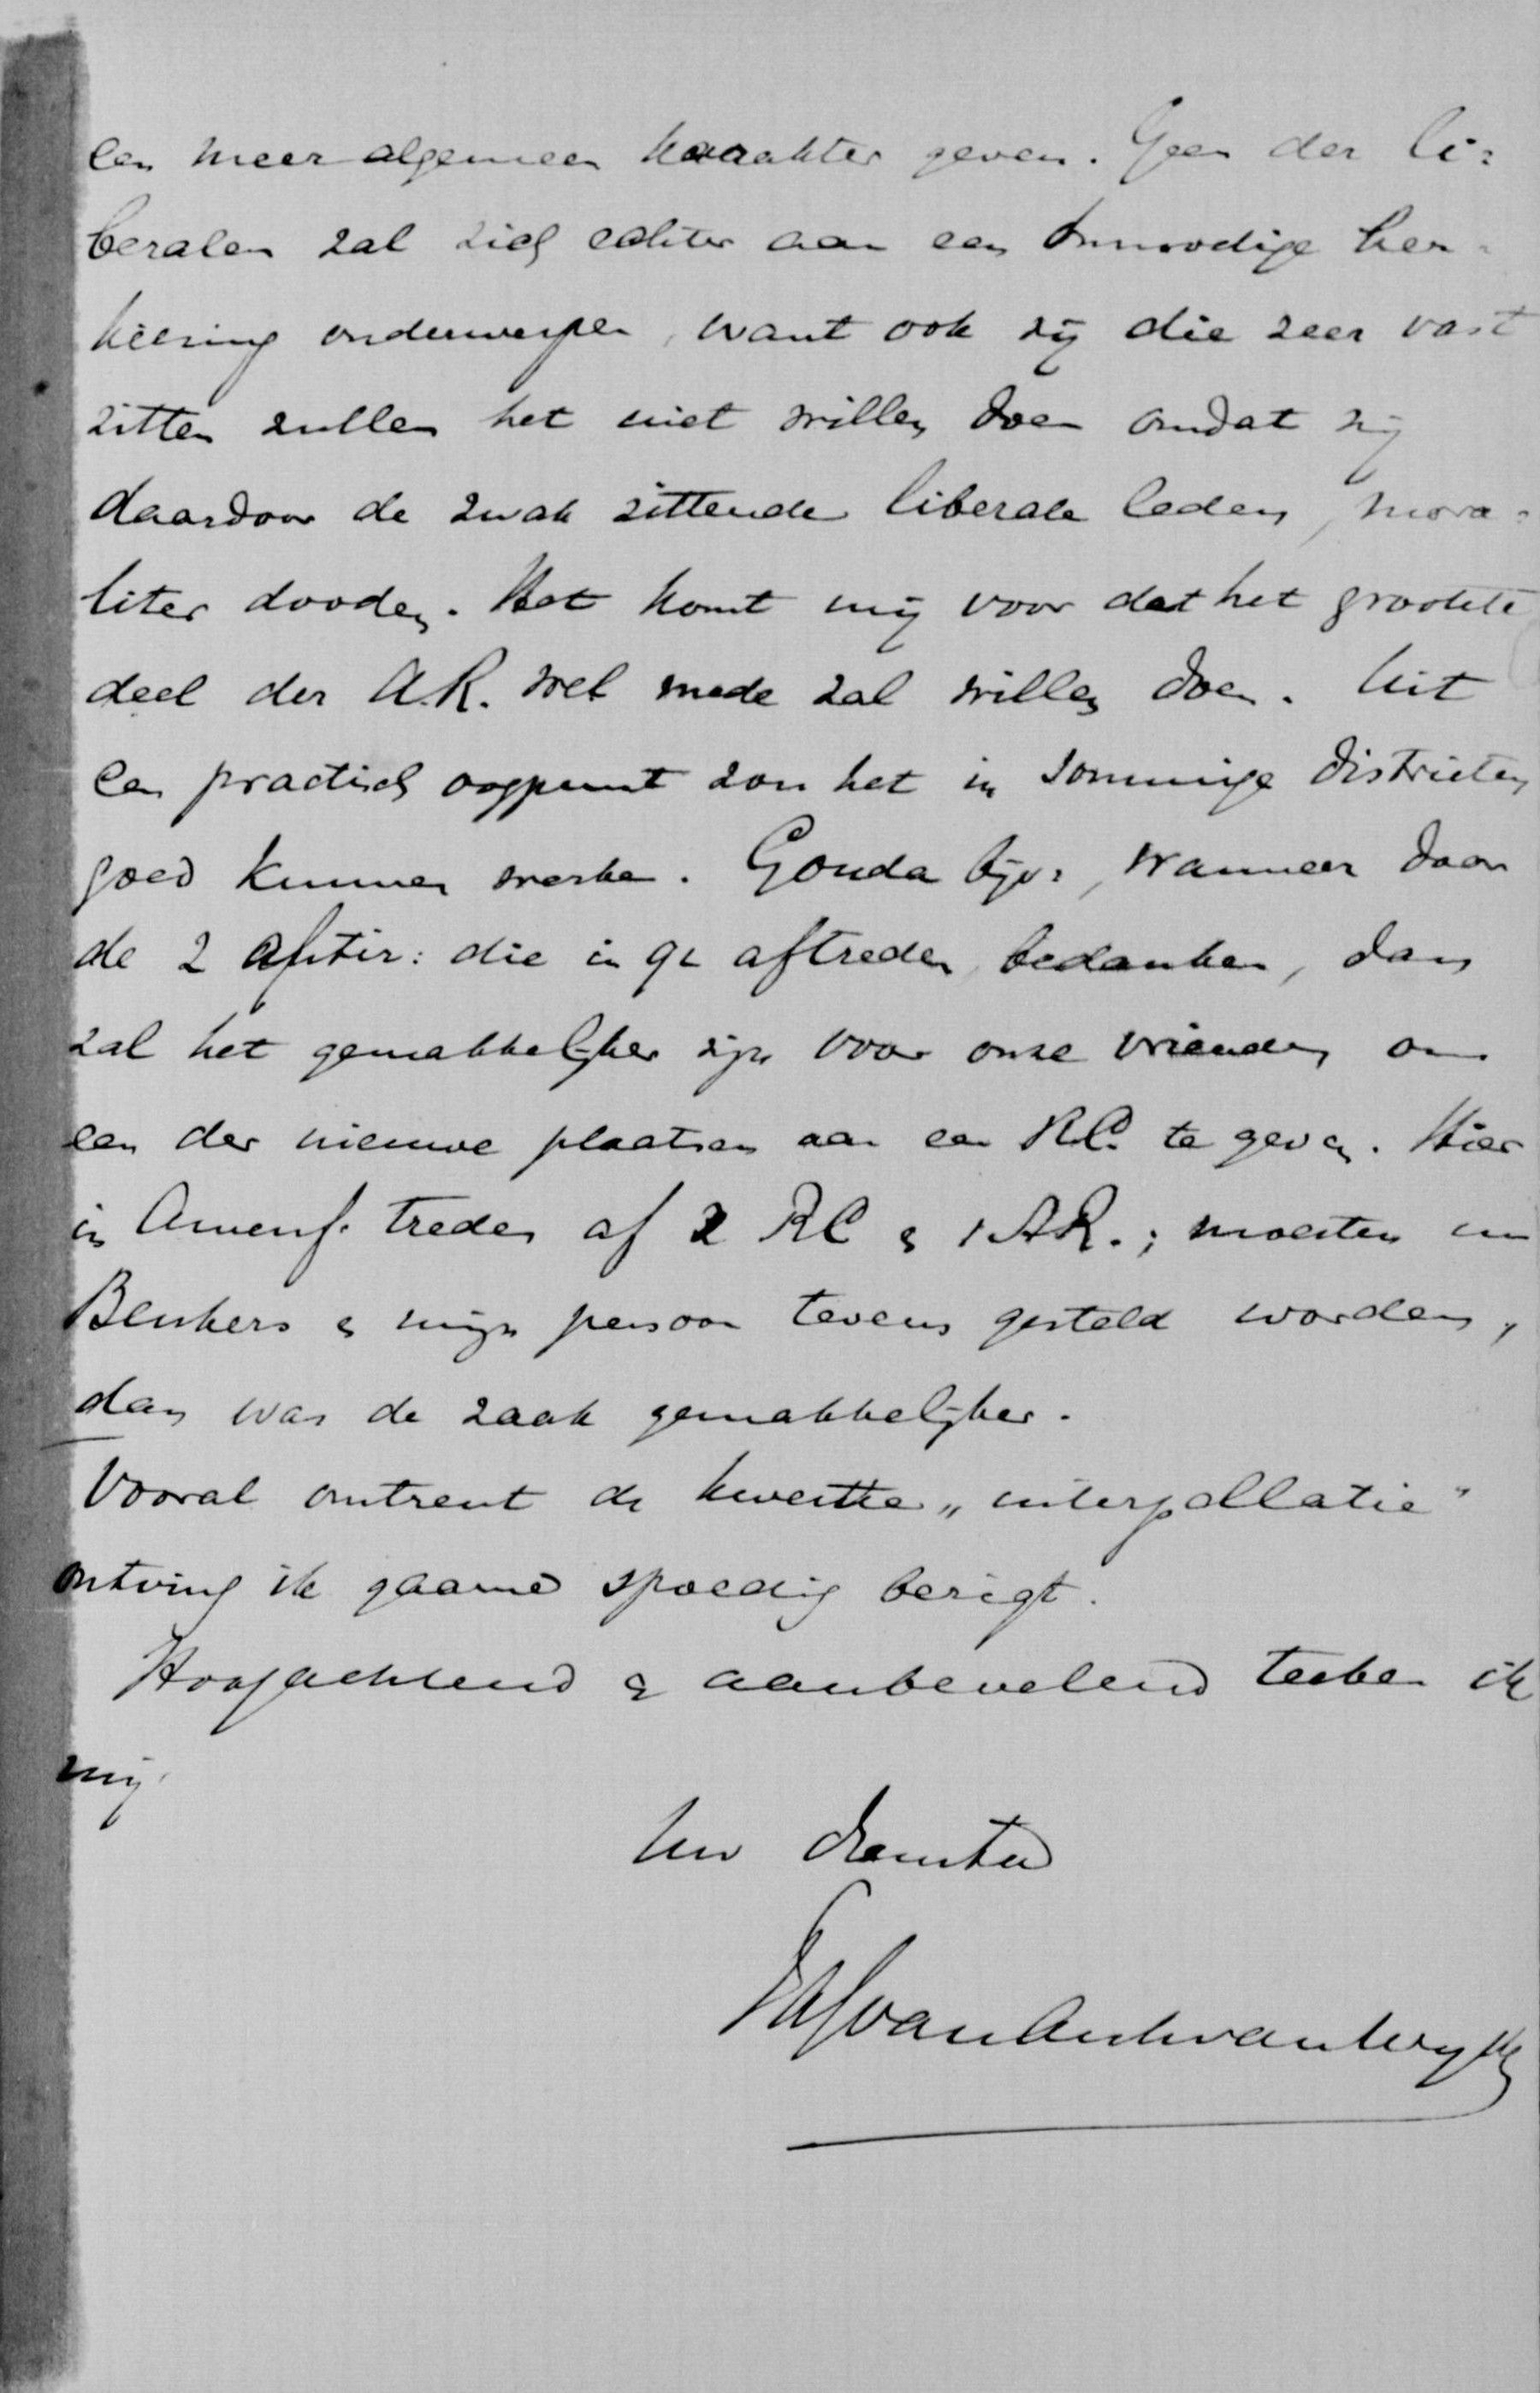 een meer algemeen karakter geven. Geen der li=
beralen zal zich echter aan een onnoodige her=
kiezing onderwerpen, want ook zij die zeer vast
zitten zullen het niet willen doen omdat zij
daardoor de zwak zittende liberale leden, mora=
liter dooden. Het komt mij voor dat het grootste
deel der A.R. wel mede zal willen doen. Uit
een practisch oogpunt zou het in sommige districten
goed kunnen werken. Gouda bijv:, wanneer daar
de 2 Aftir: die in 92 aftreden, bedanken, dan
zal het gemakkelijker zijn voor onze vrienden om
een der nieuwe plaatsen aan een R.C. te geven. Hier
in Amersf. treden af 2 RC & 1 A.R.; moesten nu
& mijn persoon tevens gesteld worden,
dan was de zaak gemakkelijker.
Vooral omtrent de kwestie „interpellatie"
ontving ik gaarne spoedig berigt.
Hoogachtend & aanbevelend teeken ik
mij
Uw
van Asch van Wijck